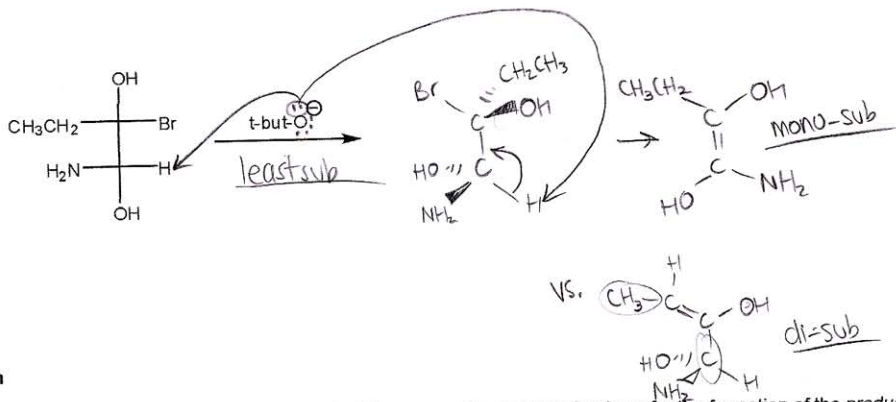 OH
CH₃CH₂ Br
H₂N H
OH
t-but-O ⊖
least sub
Br CH₂CH₃
C OH
HO C
NH₂ H
CH₃CH₂ OH
C
C
HO NH₂
mono-sub
vs.
H
CH₃-C
C-OH
HO C
NH₂ H
di-sub
n
formation of the produ